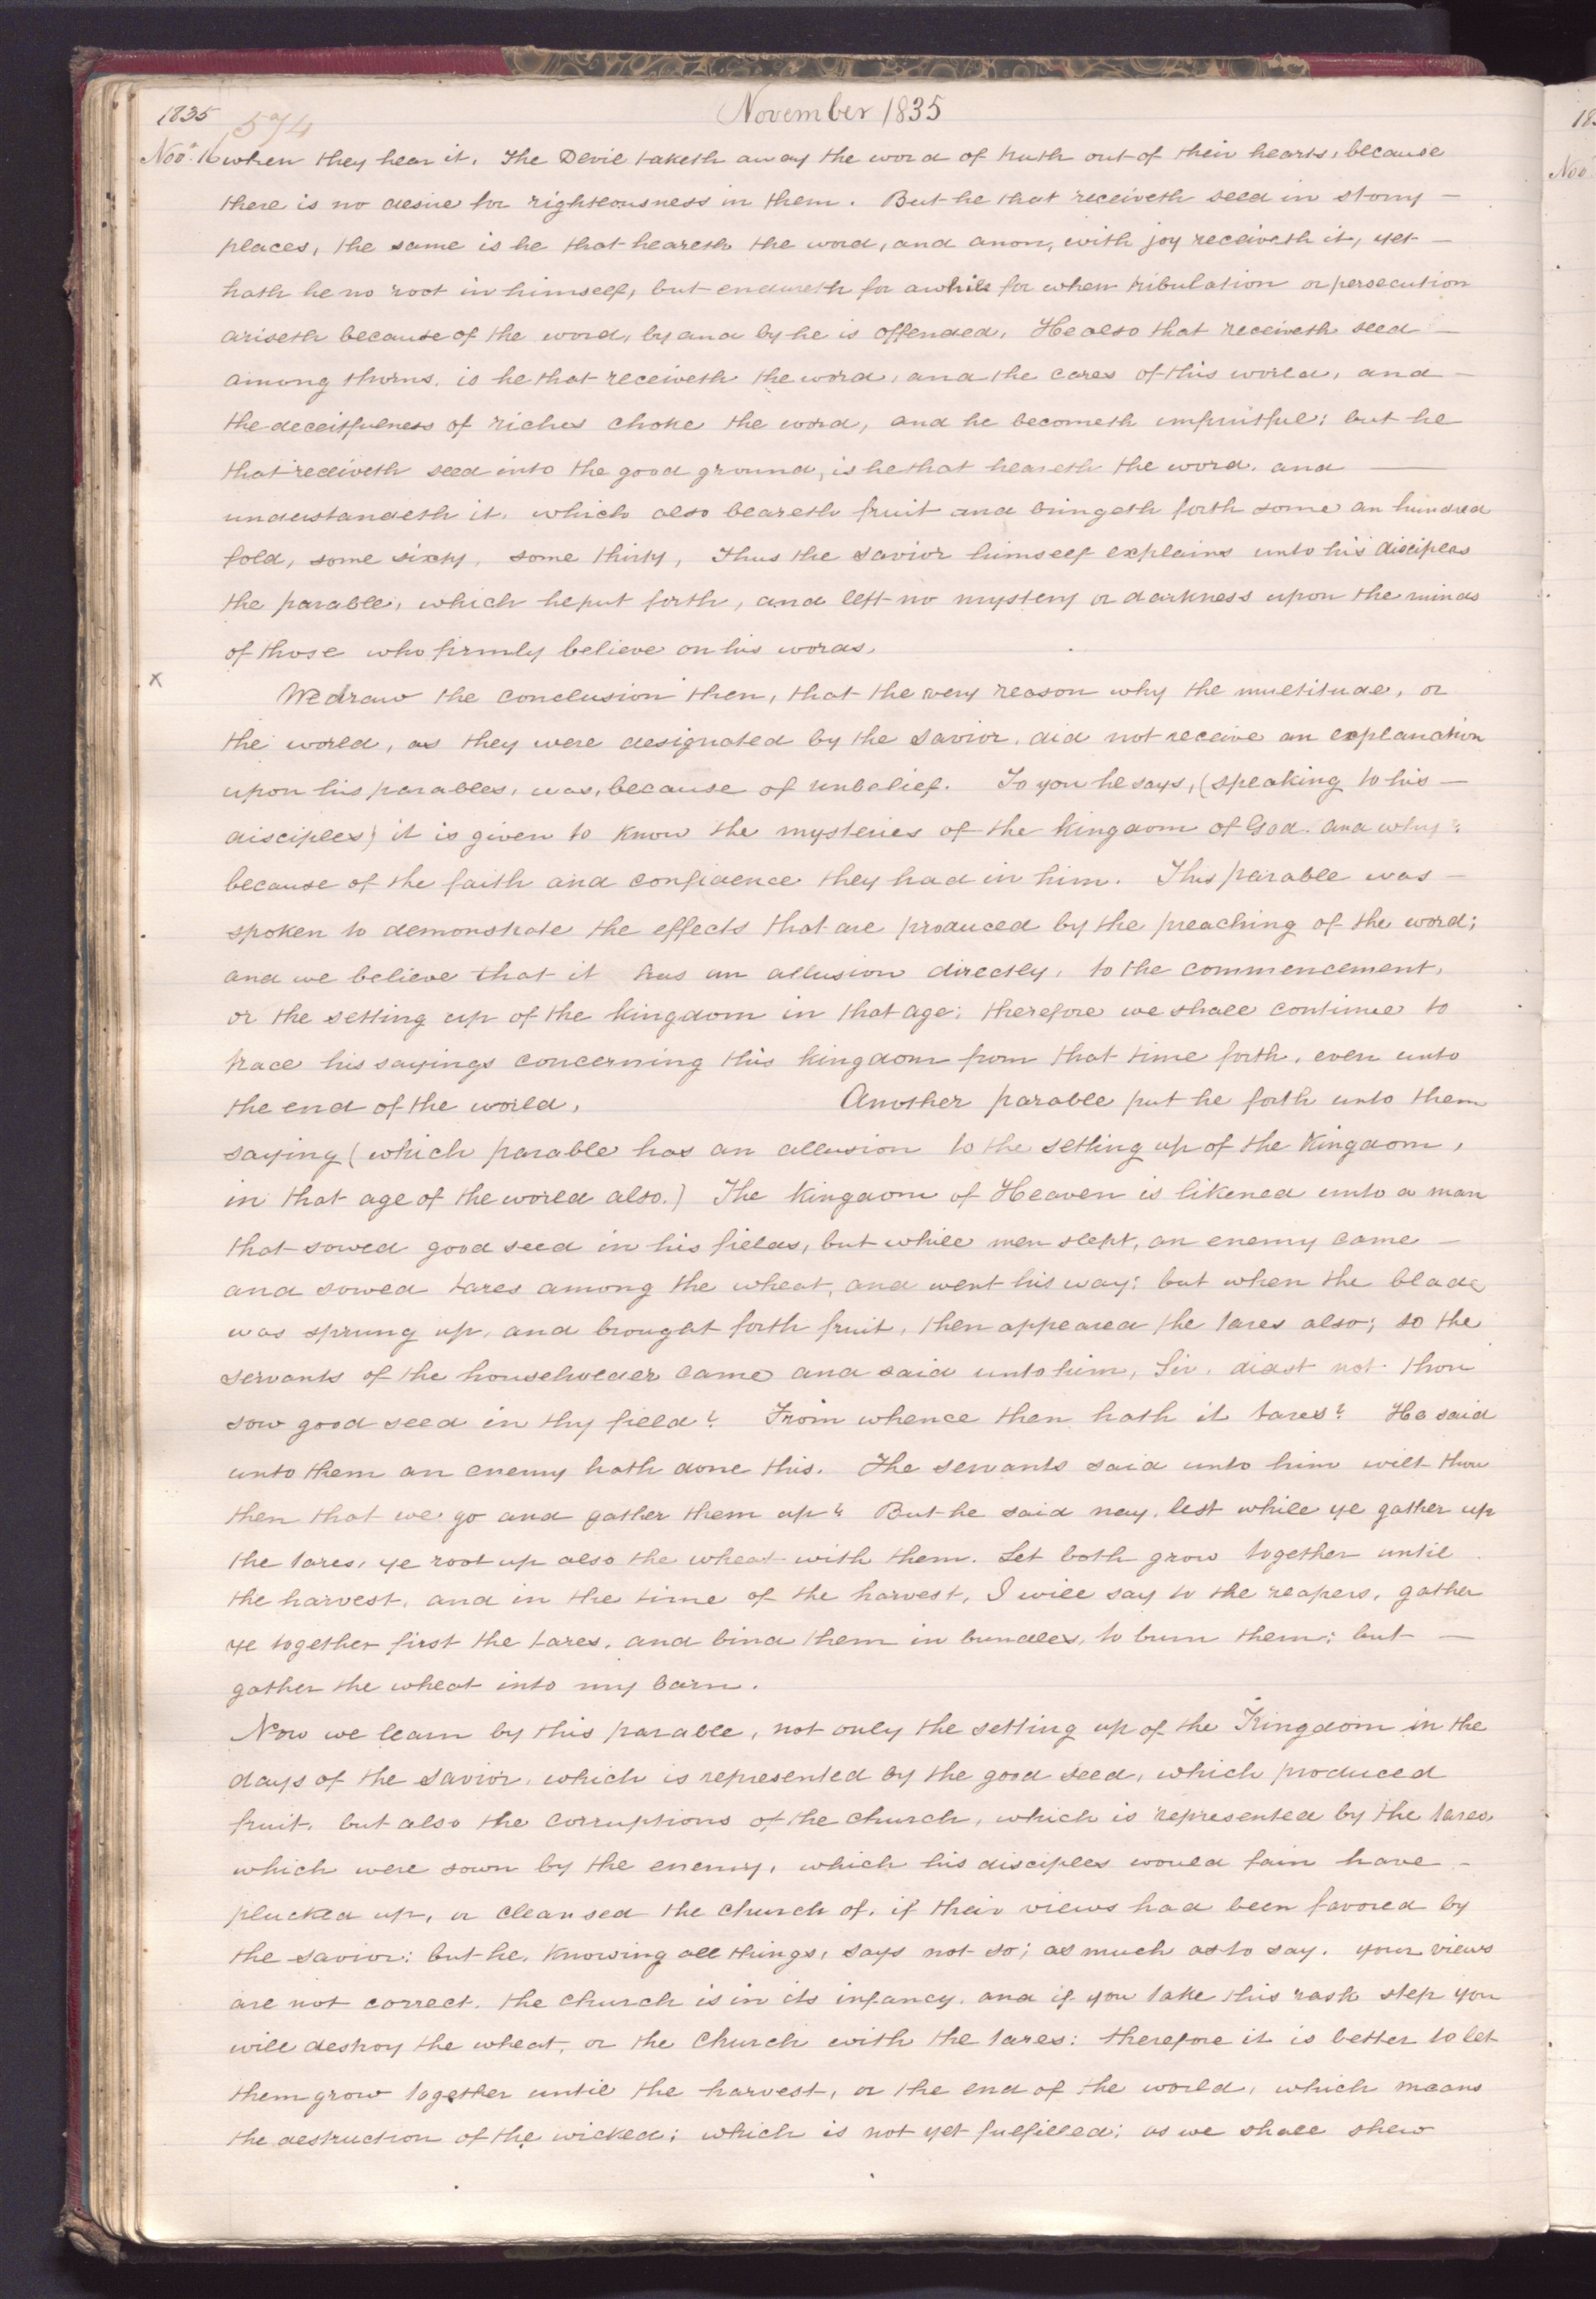 1835 574 November 1835
Nov. 16 when they hear it. The Devil taketh away the word of truth out of their hearts, because
there is no desire for righteousness in them. But he that receiveth seed in stony —
places, the same is he that heareth the word, and anon, with joy receiveth it, yet —
hath he no root in himself, but endureth for awhile for when tribulation or persecution
ariseth because of the word, by and by he is offended, He also that receiveth seed —
among thorns, is he that receiveth the word, and the cares of this world, and —
the deceitfulness of riches choke the word, and he becometh unfruitful; but he
that receiveth seed into the good ground, is he that heareth the word, and —
understandeth it, which also beareth fruit and bringeth forth some an hundred
fold, some sixty, some thirty, Thus the Savior himself explains unto his disciples
the parable, which he put forth, and left no mystery or darkness upon the minds
of those who firmly believe on his words.
x We draw the conclusion then, that the very reason why the multitude, or
the world, as they were designated by the Savior, did not receive an explanation
upon his parables, was, because of unbelief. To you he says, (speaking to his —
disciples) it is given to know the mysteries of the kingdom of God. and why?
because of the faith and confidence they had in him. This parable was —
spoken to demonstrate the effects that are produced by the preaching of the word;
and we believe that it has an allusion directly, to the commencement,
or the setting up of the kingdom in that age; therefore we shall continue to
trace his sayings concerning this kingdom from that time forth, even unto
the end of the world, Another parable put he forth unto them
saying (which parable has an allusion to the setting up of the Kingdom,
in that age of the world also.) The kingdom of Heaven is likened unto a man
that sowed good seed in his fields, but while men slept, an enemy came —
and sowed tares among the wheat, and went his way; but when the blade
was sprung up, and brought forth fruit, then appeared the tares also; so the
servants of the householder came and said unto him, Sir, didst not thou
sow good seed in thy field? From whence then hath it tares? He said
unto them an enemy hath done this. The servants said unto him wilt thou
then that we go and gather them up? But he said nay, lest while ye gather up
the tares, ye root up also the wheat with them. Let both grow together until
the harvest, and in the time of the harvest, I will say to the reapers, gather
ye together first the tares, and bind them in bundles, to burn them; but —
gather the wheat into my barn.
Now we learn by this parable, not only the setting up of the Kingdom in the
days of the Savior, which is represented by the good seed, which produced
fruit, but also the corruptions of the church, which is represented by the tares,
which were sown by the enemy, which his disciples would fain have —
plucked up, or cleansed the church of, if their views had been favored by
the savior; but he, knowing all things, says not so; as much as to say, your views
are not correct, the church is in its infancy, and if you take this rash step you
will destroy the wheat, or the Church with the tares: therefore it is better to let
them grow together until the harvest, or the end of the world, which means
the destruction of the wicked; which is not yet fulfilled; as we shall shew